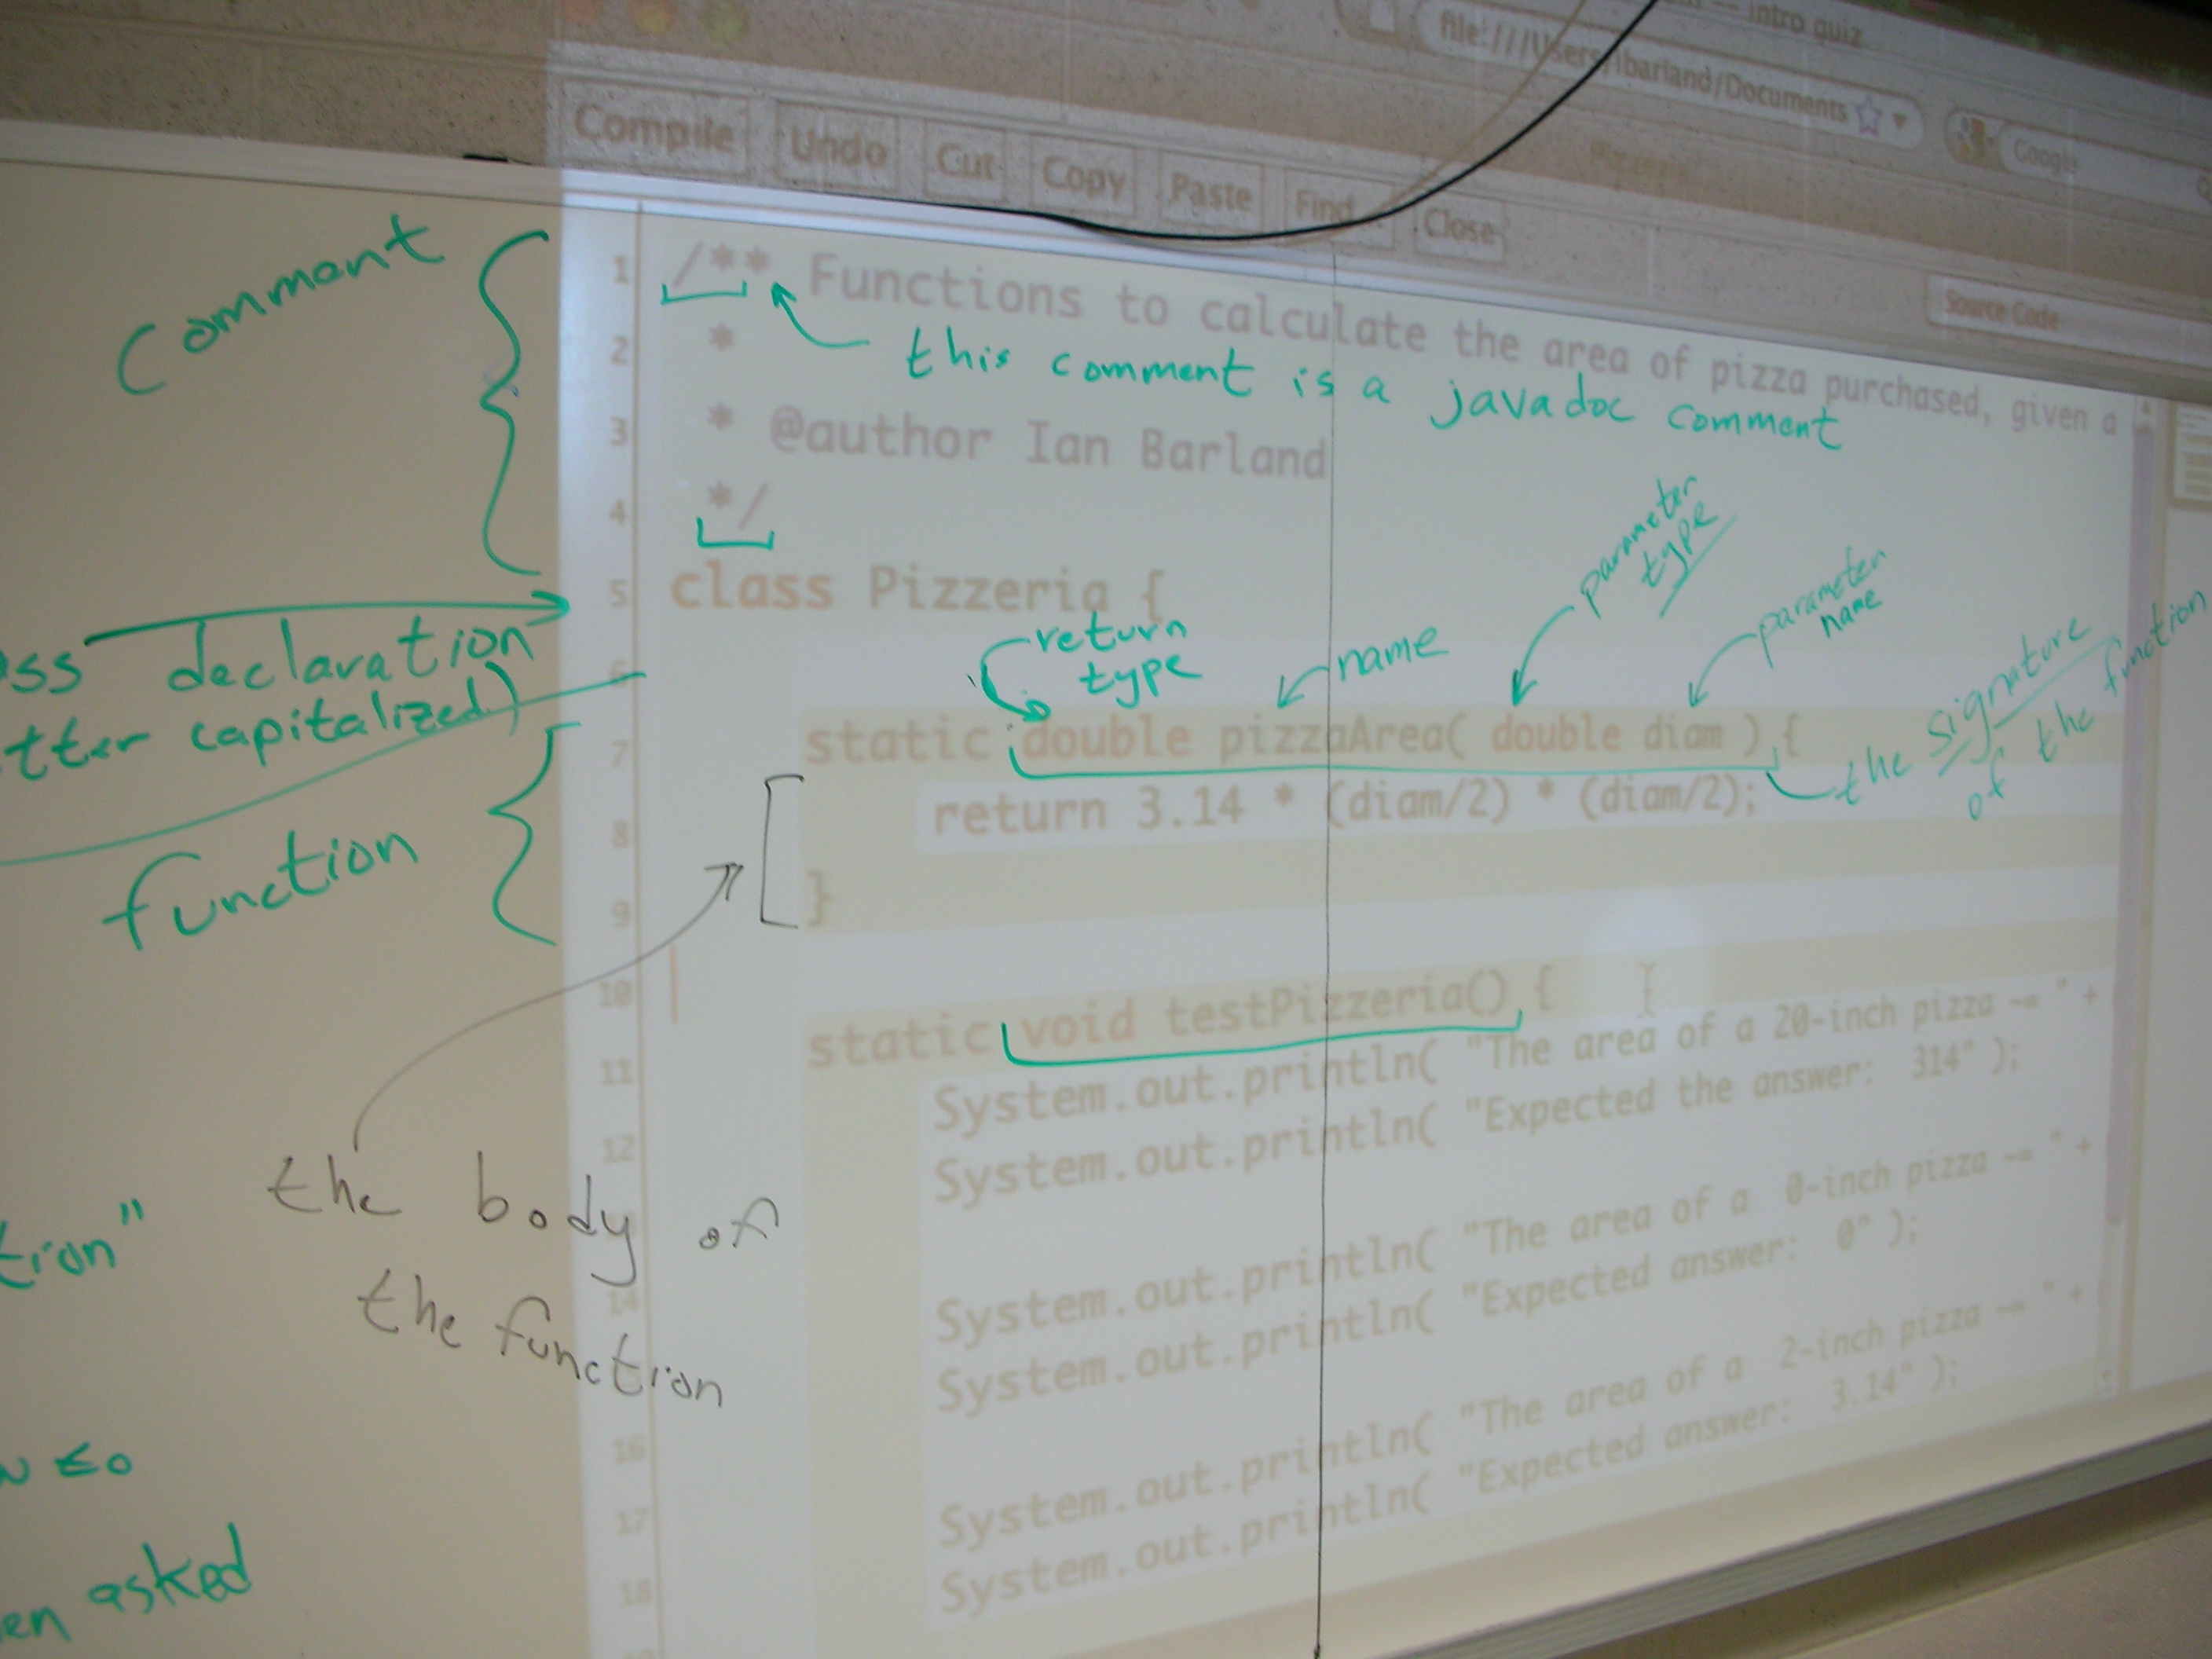 intro quiz
file:///Users/ibarland/Documents
Google
Compile Undo Cut Copy Paste Find Close
Source Code
comment
1 /** Functions to calculate the area of pizza purchased, given a
this comment is a javadoc comment
2 *
3 * @author Ian Barland
4 */
5 class Pizzeria {
declaration
capitalized)
return
type
name
parameter
type
parameter
name
6
7 static double pizzaArea( double diam ) {
the signature
of the function
8 return 3.14 * (diam/2) * (diam/2);
function
9 }
10
static void testPizzeria() {
11 System.out.println( "The area of a 20-inch pizza ~= " +
12 System.out.println( "Expected the answer: 314" );
the body of
the function
14 System.out.println( "The area of a 0-inch pizza ~= " +
System.out.println( "Expected answer: 0" );
16
17 System.out.println( "The area of a 2-inch pizza ~= " +
18 System.out.println( "Expected answer: 3.14" );
≤0
asked